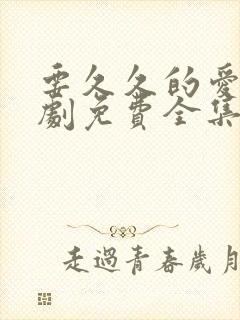 要久久的愛
劇免費全集
走過青春歲月